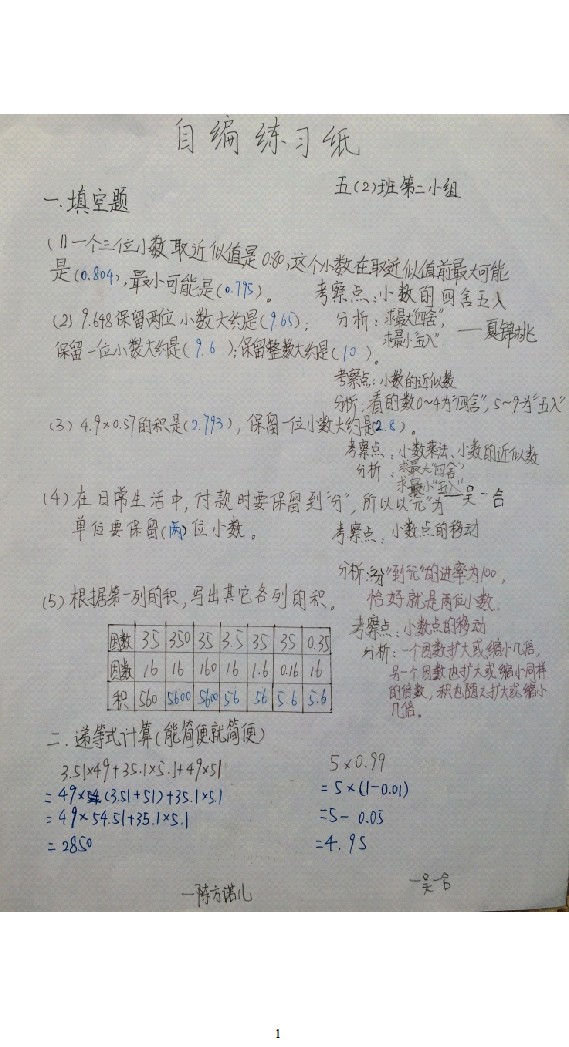 自编练习纸
五(2)班第二小组
一.填空题
(1)一个三位小数取近似值是0.80,这个小数在取近似值前最大可能
是(0.804),最小可能是(0.795)。
考察点:小数的四舍五入
分析:求最大"四舍",
求最小"五入"
(2) 9.648保留两位小数大约是(9.65);
保留一位小数大约是(9.6);保留整数大约是(10)。
考察点:小数的近似数
分析:看的数0~4为"四舍",5~9为"五入"
(3) 4.9×0.57的积是(2.793),保留一位小数大约是(2.8)。
考察点:小数乘法、小数的近似数
分析:求最大"四舍"
求最小"五入"
—吴一合
(4) 在日常生活中,付款时要保留到"分",所以以"元"为
单位要保留(两)位小数。
考察点:小数点的移动
分析:"分"到"元"的进率为100,
恰好就是两位小数.
(5) 根据第一列的积,写出其它各列的积。
考察点:小数点的移动
分析:一个因数扩大或缩小几倍,
另一个因数也扩大或缩小同样
的倍数,积也随之扩大或缩小
几倍。
因数 35 350 35 3.5 35 35 0.35
因数 16 16 160 16 1.6 0.16 16
积 560 5600 5600 56 56 5.6 5.6
二.递等式计算(能简便就简便)
3.51×49+35.1×5.1+49×51
=49×(3.51+51)+35.1×5.1
=49×54.51+35.1×5.1
=2850
—陈方诺儿
5×0.99
=5×(1-0.01)
=5-0.05
=4.95
—吴一合
1